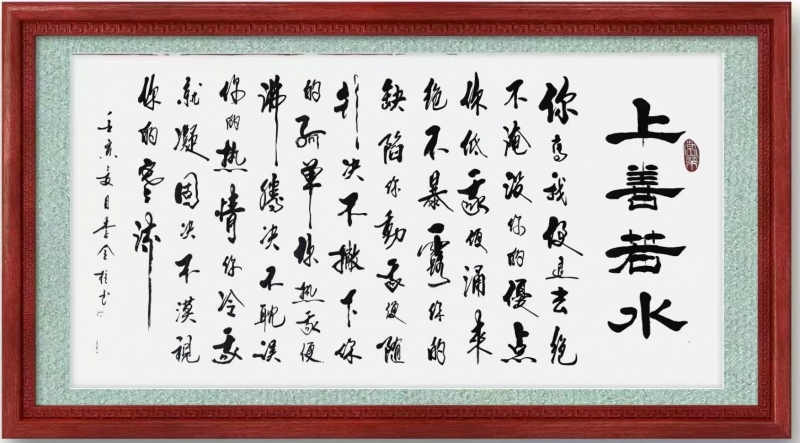 上善若水
你高我便退去绝
不淹没你的優点
你低我便涌来
绝不暴露你的
缺陷你動我便随
行决不撇下你
的孤单你热我便
沸腾决不耽误
你的热情你冷我
就凝固决不漠视
你的寒流
夏月李金柱书